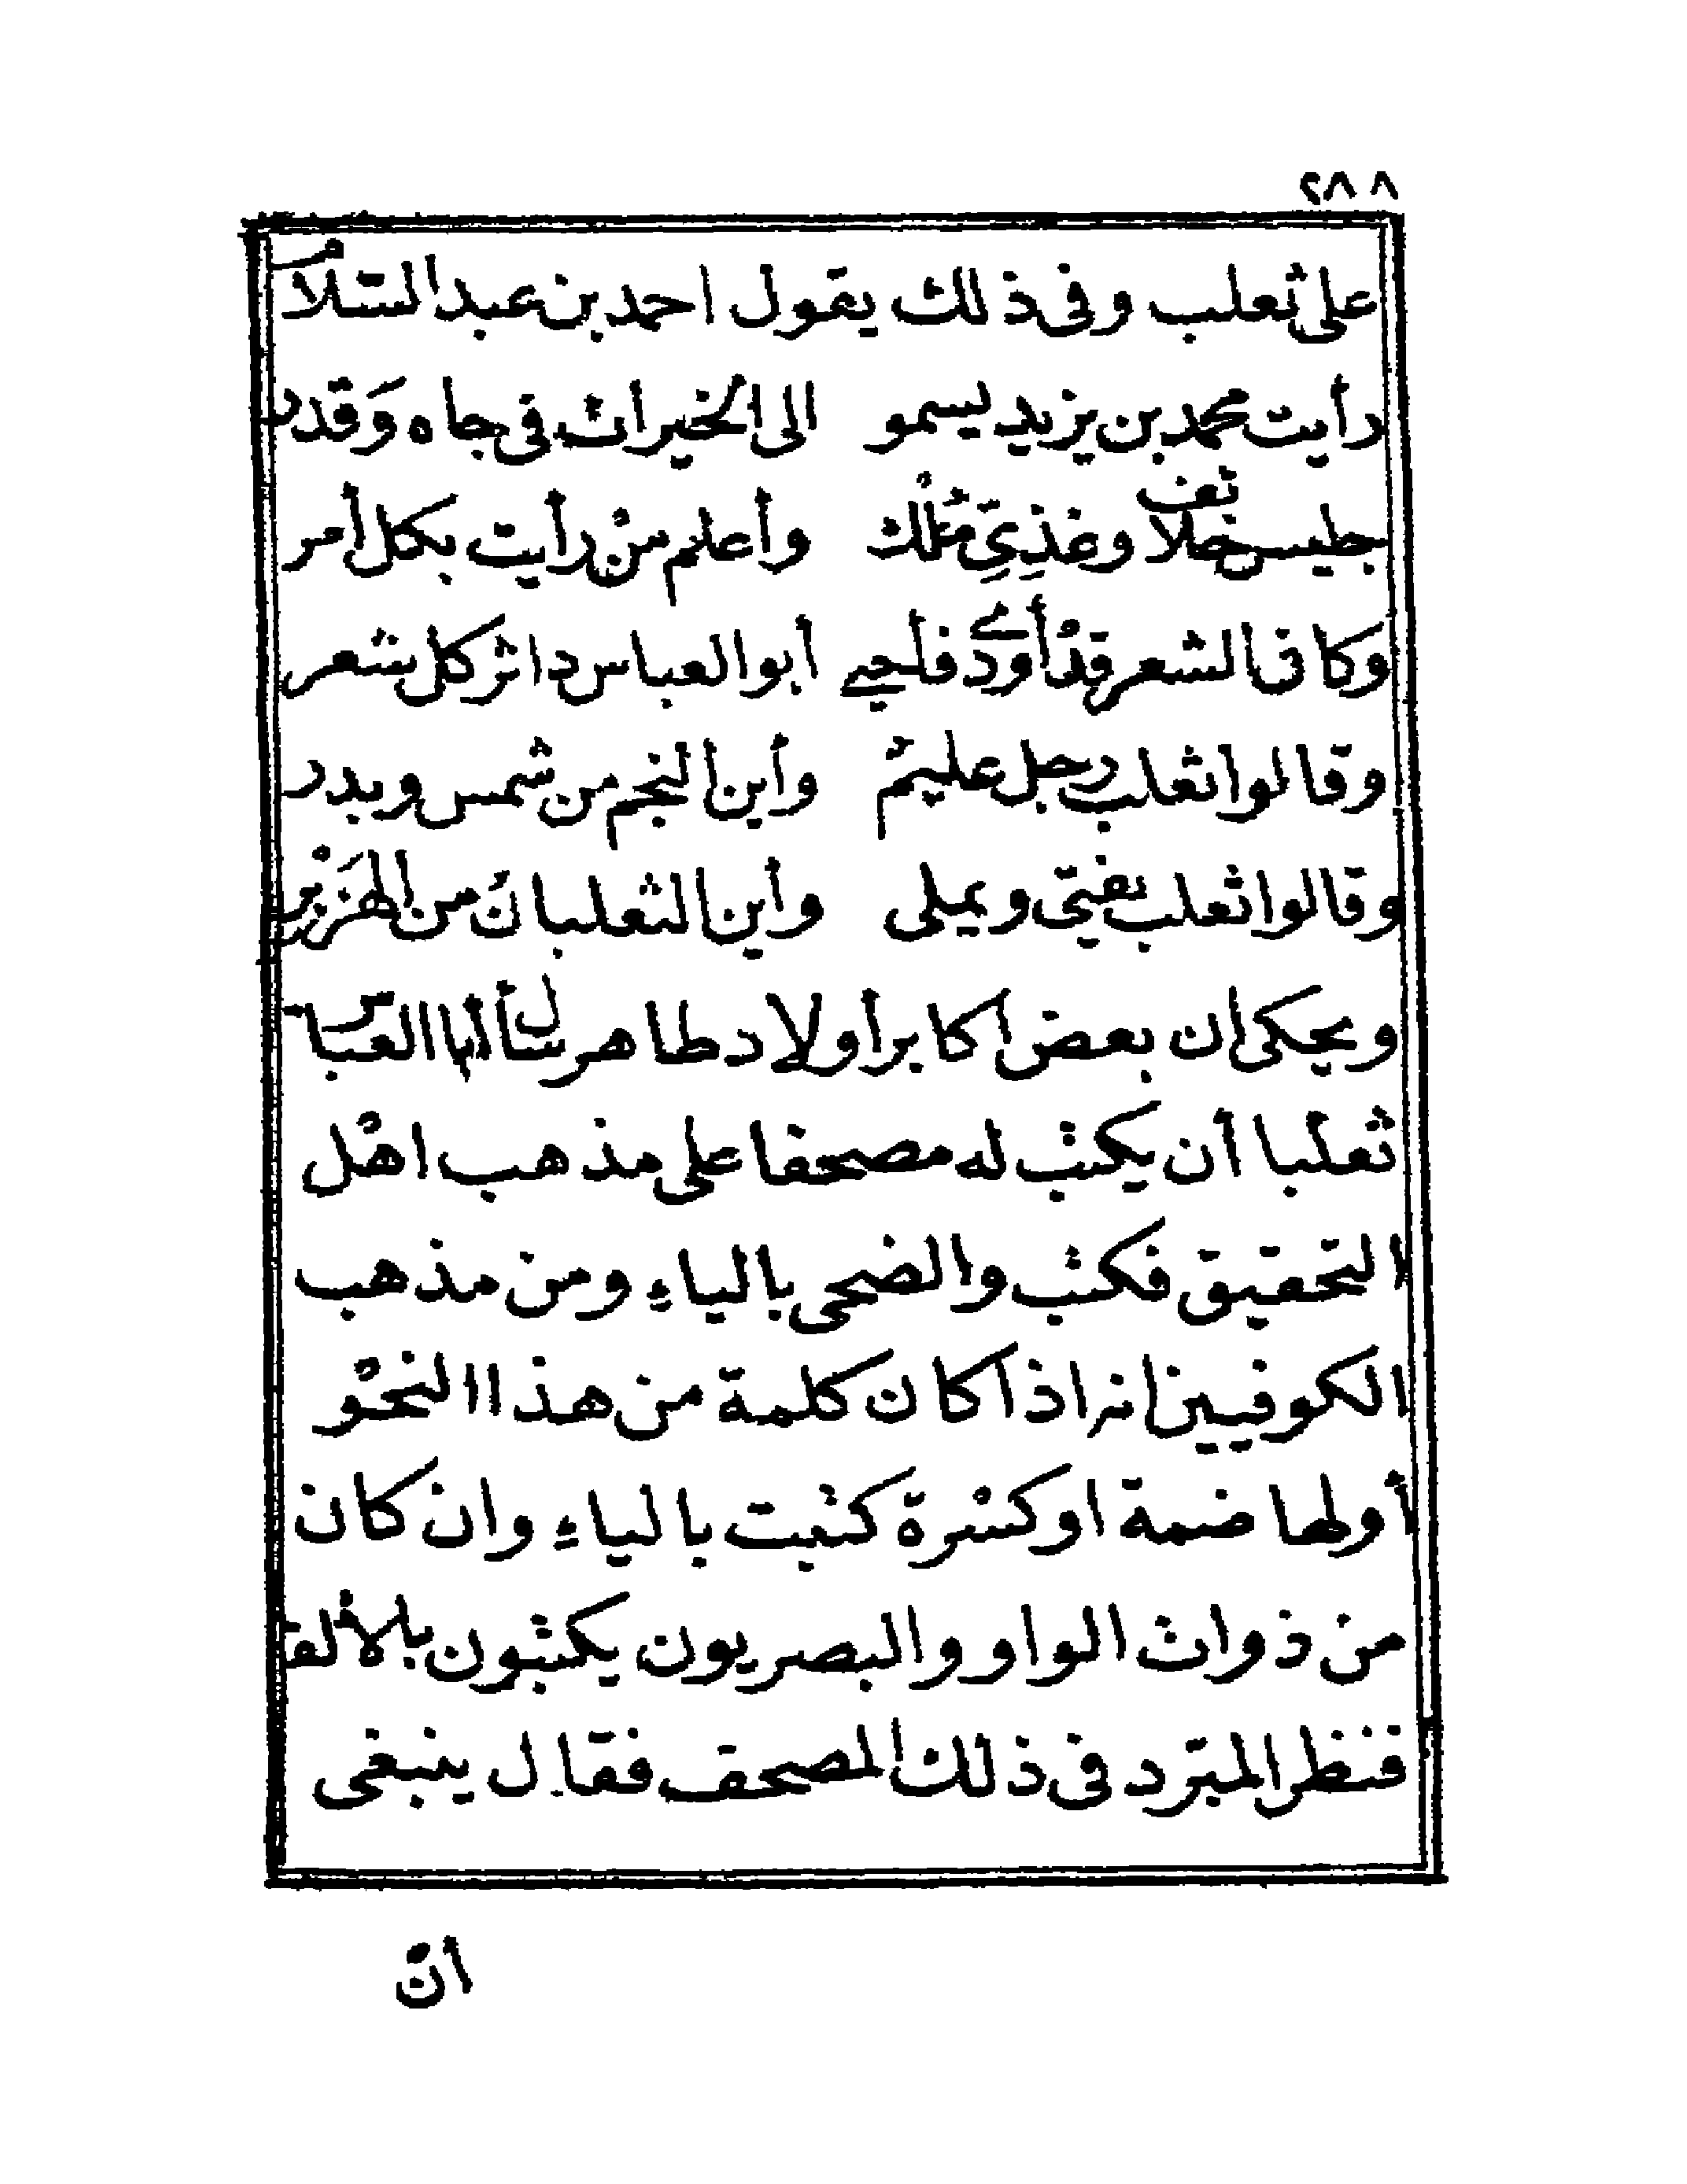 ٢٨٨
على ثعلب وفى ذلك يقول احمد بن عبد السّلام
رأيت محمد بن يزيد يسمو الى الخيرات فى جاه وَقدر
جليس خلائف وغذِيَّ مُلْك وأعلم منْ رأيت بكل أمر
وكان الشعر قدْ أودى فأحيى أبو العباس داثر كل شعر
وقالوا ثعلب رجل عليمٌ وأين النجم من شمس وبدر
وقالوا ثعلب يفتى ويملى وأين الثعلبان من الهَزَبْر
ويحكى ان بعض اكابر أولاد طاهر سأل أبا العباس
ثعلبا أن يكتب له مصحفا على مذهب اهْل
التحقيق فكتب والضحى بالياءِ ومن مذهب
الكوفيين انه اذا كان كلمة من هذا النحْو
أولها ضمة او كسْرة كتبت بالياءِ وان كان
من ذوات الواو والبصريون يكتبون بالألف
فنظر المبرّد فى ذلك المصحف فقال ينبغى
انّ